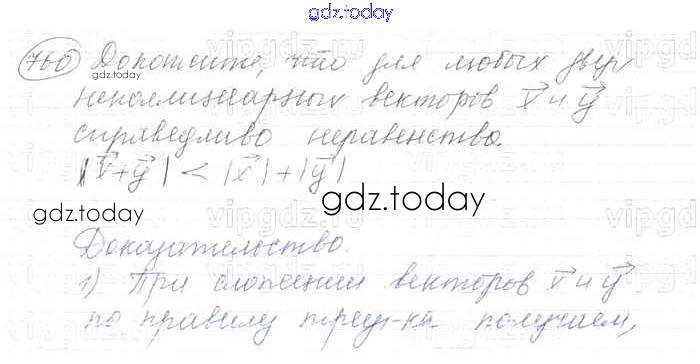 gdz.today
760 Докажите, что для любых двух
неколлинеарных векторов x⃗ и y⃗
справедливо неравенство.
|x⃗+y⃗| < |x⃗|+|y⃗|
gdz.today
gdz.today
gdz.today
Доказательство.
1) При сложении векторов x⃗ и y⃗
по правилу треуг-ка получаем,
gdz.today